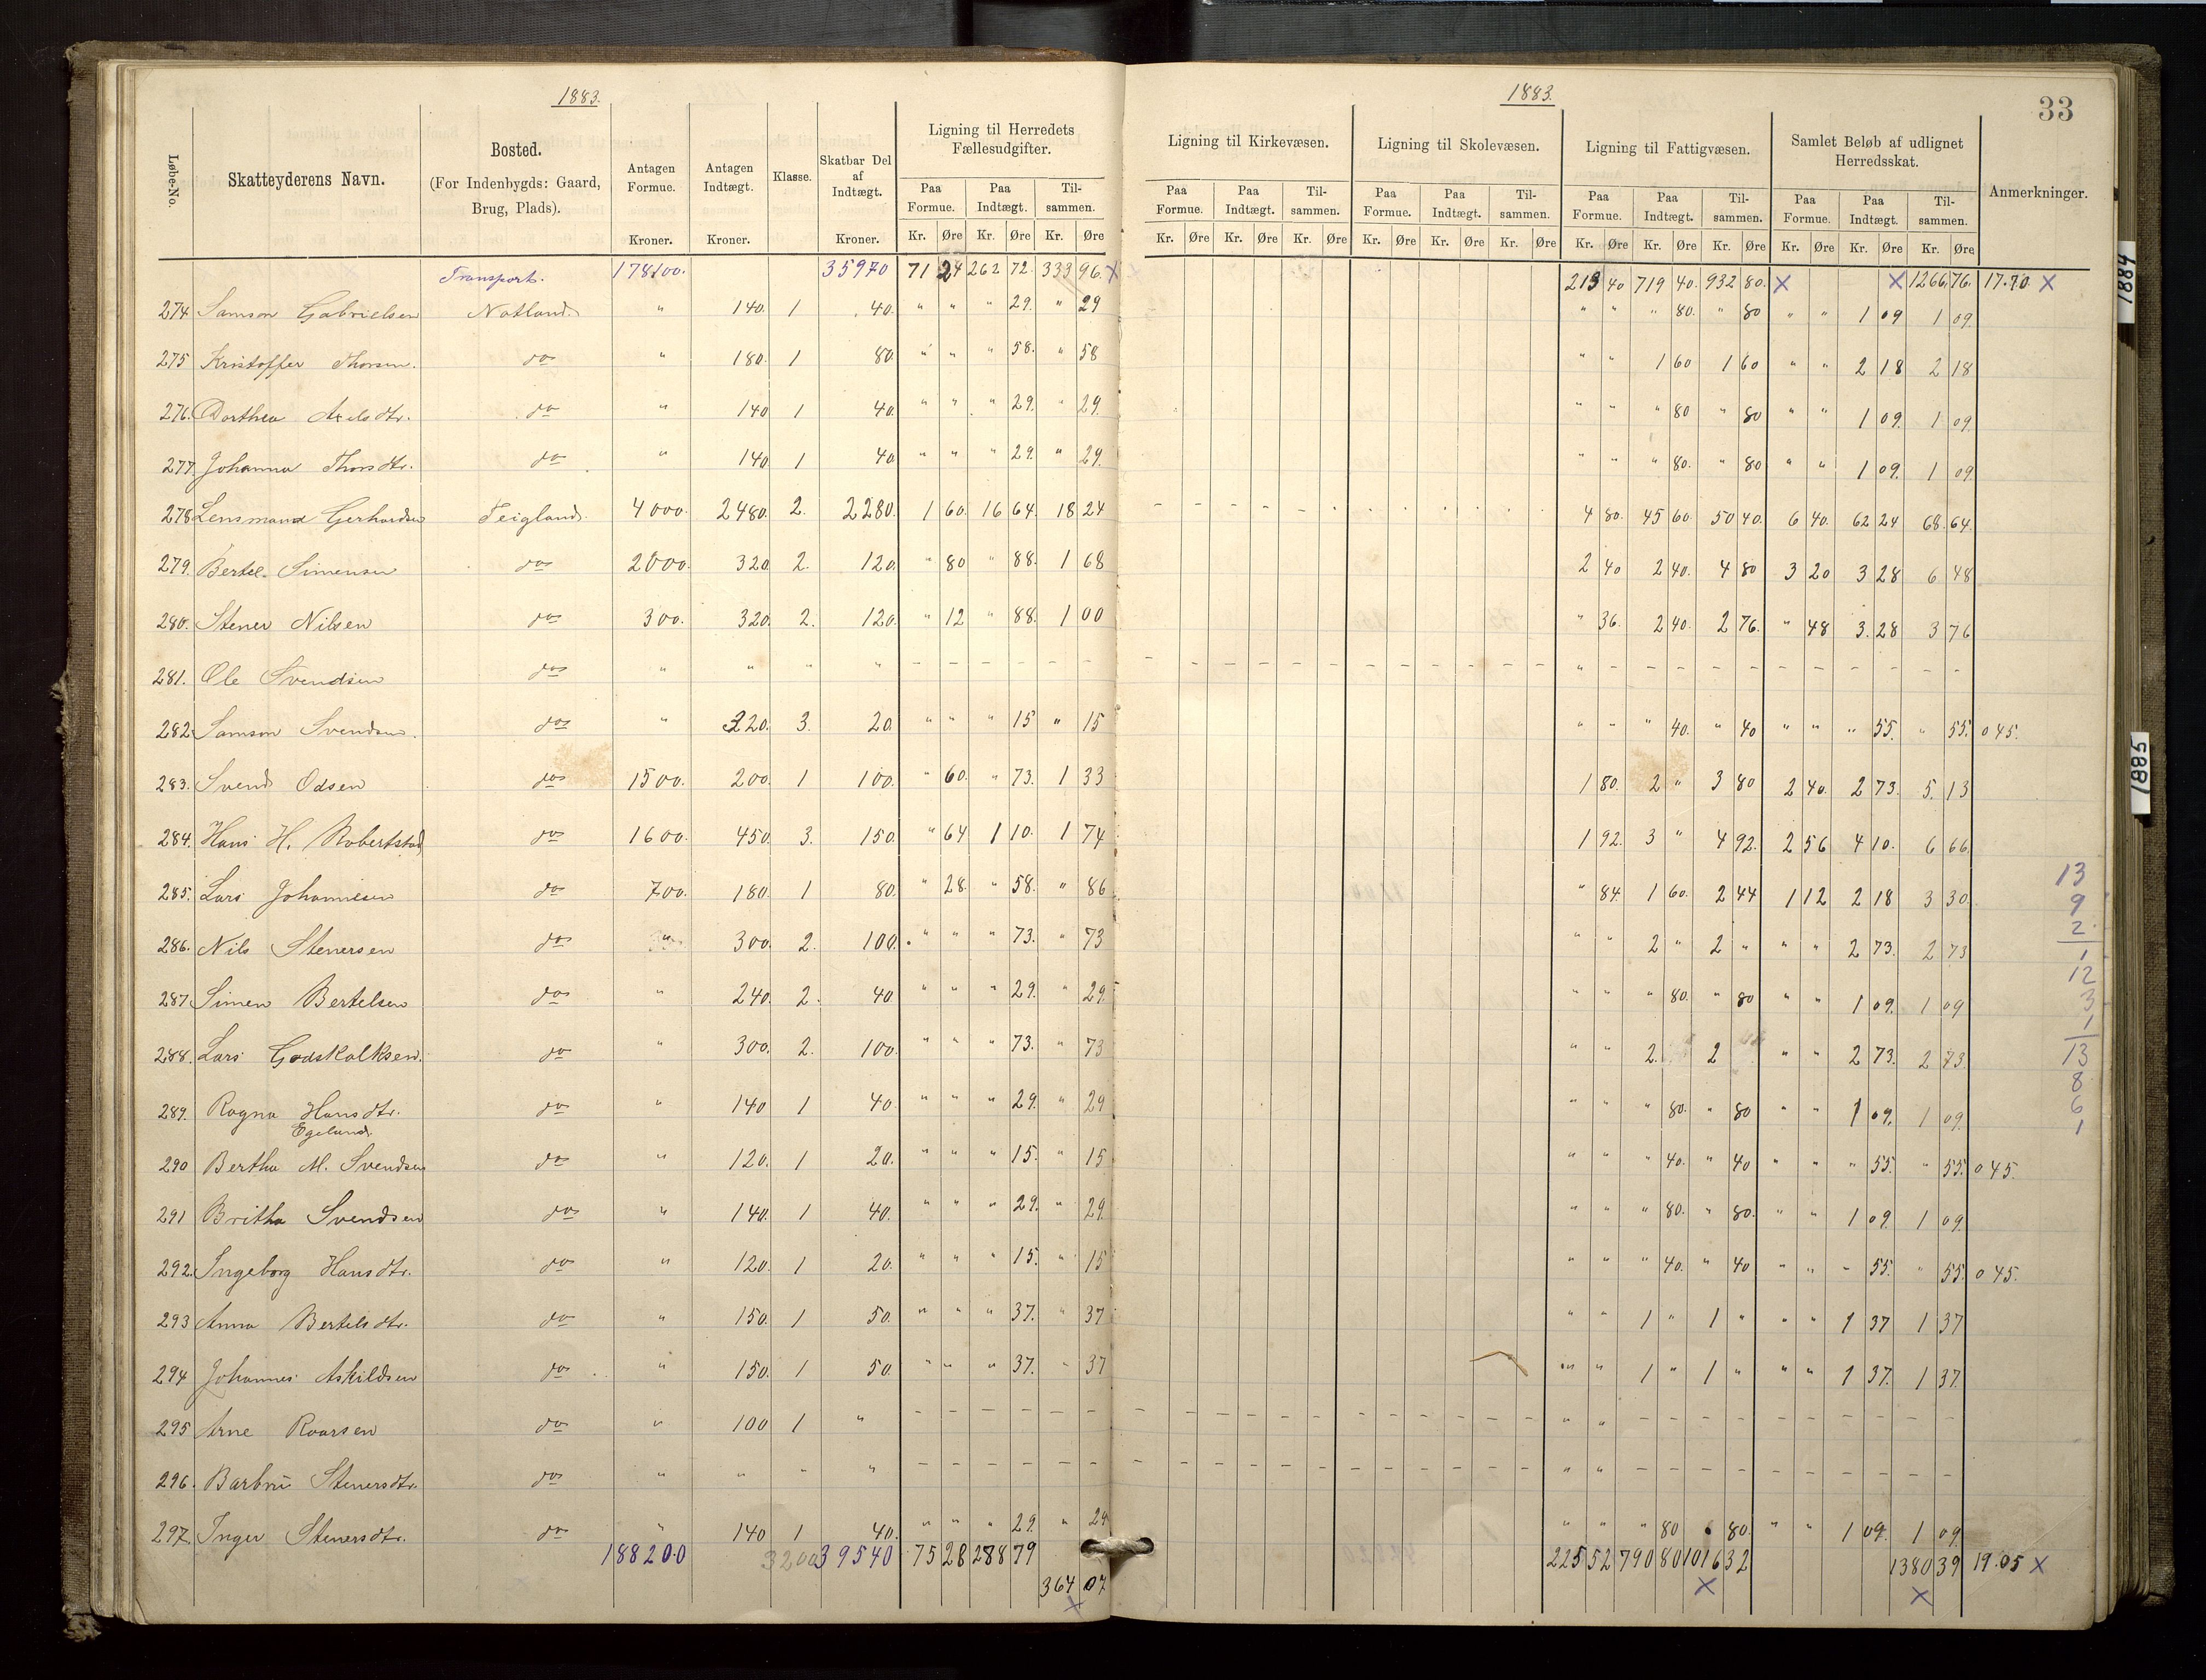 1883.
1883.
33
Løbe-No. Skatteyderens Navn. Bosted. (For Indenbygds: Gaard, Brug, Plads). Antagen Formue. Kroner. Antagen Indtægt. Kroner. Klasse. Skatbar Del af Indtægt. Kroner. Ligning til Herredets Fællesudgifter. Ligning til Kirkevæsen. Ligning til Skolevæsen. Ligning til Fattigvæsen. Samlet Beløb af udlignet Herredsskat. Anmerkninger.
Paa Formue. Paa Indtægt. Tilsammen. Paa Formue. Paa Indtægt. Tilsammen. Paa Formue. Paa Indtægt. Tilsammen. Paa Formue. Paa Indtægt. Tilsammen. Paa Formue. Paa Indtægt. Tilsammen.
Kr. Øre Kr. Øre Kr. Øre Kr. Øre Kr. Øre Kr. Øre Kr. Øre Kr. Øre Kr. Øre Kr. Øre Kr. Øre Kr. Øre Kr. Øre Kr. Øre Kr. Øre
Transport. 178100. 35970 71 24 262 72. 333 96. X 213 40 719 40. 932 80. X X 1266 76. 17.90. X
274 Samson Gabrielsen Natland. " 140. 1 40. " " " 29. " 29 " " " 80. " 80 " " 1 09 1 09.
275 Kristoffer Thorsen. do " 180. 1 80. " " " 58. " 58 " " 1 60 1 60 " " 2 18 2 18
276. Dorthea Axelsdtr. do " 140 1 40. " " " 29. " 29. " " " 80 " 80 " " 1 09. 1 09.
277. Johanna Thorsdtr. do " 140. 1 40 " " " 29. " 29. " " " 80. " 80 " " 1 09. 1 09
278 Lensmand Gerhardsen Teigland. 4000. 2480. 2. 2280. 1 60. 16 64. 18 24 4 80. 45 60. 50 40. 6 40. 62 24 68. 64.
279. Bertel Simensen do 2000. 320. 2. 120. " 80 " 88. 1 68 2 40 2 40. 4 80 3 20 3 28 6 48
280. Stener Nilsen do 300. 320. 2. 120. " 12 " 88. 1 00 " 36. 2 40. 2 76. " 48 3. 28 3 76
281. Ole Svendsen do " " " " – – – – – – – – – – – – – – – – – – " – – – – – – – – – – –
282 Samson Svendsen. do " 320. 3. 20. " " " 15 " 15 " " " 40. " 40 " " " 55. " 55. 0 45.
283. Svend Odsen do 1500. 200. 1 100. " 60. " 73. 1 33 1 80. 2 " 3 80 2 40. 2 73. 5. 13
284. Hans H. Robertstad do 1600. 450. 3. 150. " 64 1 10. 1 74 1 92. 3 " 4 92. 2 56 4 10. 6 66.
285. Lars Johannesen do 700. 180. 1 80. " 28. " 58. " 86 " 84. 1 60. 2 44 1 12 2 18 3 30.
286. Nils Stenersen do " 300. 2. 100. " " " 73. " 73 " " 2 " 2 " " " 2 73. 2 73
287 Simen Bertelsen do " 240. 2. 40 " " " 29. " 29. " " " 80. " 80 " " 1 09. 1 09
288. Lars Godskalksen. do " 300. 2. 100. " " " 73. " 73 " " 2. 2 " " 2 73. 2 73
289. Ragna Hansdtr. Egeland. do " 140 1 40. " " " 29. " 29 " " " 80. " 80 " " 1 09. 1 09.
290 Bertha M. Svendsen do " 120. 1 20. " " " 15. " 15 " " " 40. " 40 " " " 55. " 55. 0 45.
291 Britha Svendsen do " 140. 1 40. " " " 29. " 29. " " " 80. " 80. " " 1 09. 1 09.
292. Ingeborg Hansdtr. do " 120. 1 20. " " " 15. " 15 " " " 40. " 40 " " " 55. " 55. 0 45.
293 Anna Bertelsdtr. do " 150. 1 50. " " " 37. " 37 " " 1 " 1 " " " 1 37 1 37
294 Johannes Askildsen do " 150. 1 50. " " " 37. " 37 " " 1 " 1 " " " 1 37. 1 37.
295 Arne Roarsen do " 100 1 " – – – – – – – – – – – – – – – – – – " " – – – – – – – – – –
296. Barbru Stenersdtr. do " " " " – – – – – – – – – – – – – – – – – – " " – – – – – – – – – –
297. Inger Stenersdtr. do " 140 1 40. " " " 29. " 29 " " " 80 " 80. " " 1 09. 1 09
188200 3200 39540 75 28 288 79 225 52 790 80 1016 32 1380 39 19.05 X
364 07
X X X
13
9
2
1
12
3
1
13
8
6
1
1884
1885